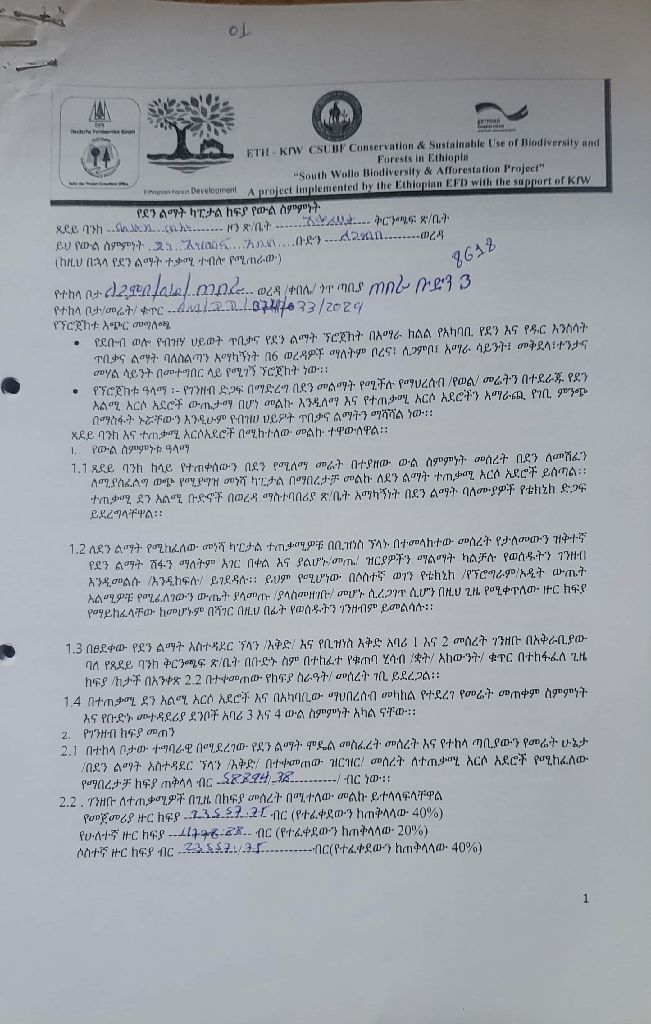 01
DFS
Deutsche Forstservice GmbH
Ethiopian Forest Development
ETH - KfW CSUBF Conservation & Sustainable Use of Biodiversity and
Forests in Ethiopia
"South Wollo Biodiversity & Afforestation Project"
A project implemented by the Ethiopian EFD with the support of KfW
የደን ልማት ካፒታል ክፍያ የውል ስምምነት
ጸደይ ባንክ ዞን ጽ/ቤት ቅርንጫፍ ጽ/ቤት
ይህ የውል ስምምነት ቡድን ለጋምቦ ወረዳ
(ከዚህ በኋላ የደን ልማት ተቃሚ ተብሎ የሚጠራው)
8618
የተከላ ቦታ ወረዳ /ቀበሌ/ ጎጥ ጣቢያ ጠበራ ቡድን 3
የተከላ ቦታ/መሬት/ ቁጥር
የፕሮጀክቱ አጭር መግለጫ
• የደቡብ ወሎ የብዝሃ ህይወት ጥበቃና የደን ልማት ፕሮጀክት በአማራ ክልል የአካባቢ የደን እና የዱር እንስሳት
ጥበቃና ልማት ባለስልጣን አማካኝነት በ6 ወረዳዎች ማለትም ቦረና፣ ለጋምቦ፣ አማራ ሳይንት፣ መቅደላ፣ተንታና
መሃል ሳይንት በመተግበር ላይ የሚገኝ ፕሮጀክት ነው፡፡
• የፕሮጀክቱ ዓላማ ፡- የገንዘብ ድጋፍ በማድረግ በደን መልማት የሚችሉ የማህረሰብ /የወል/ መሬትን በተደራጁ የደን
አልሚ አርሶ አደሮች ውጤታማ በሆነ መልኩ እንዲለማ እና የተጠቃሚ አርሶ አደሮችን አማራጪ የገቢ ምንጭ
በማስፋት ኑሯቸውን እንዲሁም የብዝሀ ህይዎት ጥበቃና ልማትን ማሻሻል ነው፡፡
ጸደይ ባንክ እና ተጠቃሚ አርሶአደሮች በሚከተለው መልኩ ተዋውለዋል፡፡
1. የውል ስምምነቱ ዓላማ
1.1 ጸደይ ባንክ ከላይ የተጠቀሰውን በደን የሚለማ መሬት በተያዘው ውል ስምምነት መሰረት በደን ለመሸፈን
ለሚያስፈልግ ወጭ የሚያግዝ መነሻ ካፒታል በማበረታቻ መልኩ ለደን ልማት ተጠቃሚ አርሶ አደሮች ይሰጣል፡፡
ተጠቃሚ ደን አልሚ ቡድኖች በወረዳ ማስተባበሪያ ጽ/ቤት አማካኝነት በደን ልማት ባለሙያዎች የቴክኒክ ድጋፍ
ይደረግላቸዋል፡፡
1.2 ለደን ልማት የሚከፈለው መነሻ ካፒታል ተጠቃሚዎቹ በቢዝነስ ፕላኑ በተመላከተው መሰረት የታለመውን ዝቅተኛ
የደን ልማት ሽፋን ማለትም አገር በቀል እና ያልሆኑ/መጤ/ ዝርያዎችን ማልማት ካልቻሉ የወሰዱትን ገንዘብ
እንዲመልሱ /እንዲከፍሉ/ ይገደዳሉ፡፡ ይህም የሚሆነው በሶስተኛ ወገን የቴክኒክ /የፕሮግራም/ኦዲት ውጤት
አልሚዎቹ የሚፈለገውን ውጤት ያላመጡ /ያላስመዘገቡ/ መሆኑ ሲረጋገጥ ሲሆን በዚህ ጊዜ የሚቀጥለው ዙር ክፍያ
የማይከፈላቸው ከመሆኑም በሻገር በዚህ በፊት የወሰዱትን ገንዘብም ይመልሳሉ፡፡
1.3 በፀደቀው የደን ልማት አስተዳደር ፕላን /እቅድ/ እና የቢዝነስ እቅድ አባሪ 1 እና 2 መሰረት ገንዘቡ በአቅራቢያው
ባለ የጸደይ ባንክ ቅርንጫፍ ጽ/ቤት በቡድኑ ስም በተከፈተ የቁጠባ ሂሳብ /ቋት/ አካውንት/ ቁጥር በተከፋፈለ ጊዜ
ክፍያ /ከታች በአንቀጽ 2.2 በተቀመጠው የከፍያ ስራዓት/ መሰረት ገቢ ይደረጋል፡፡
1.4 በተጠቃሚ ደን አልሚ አርሶ አደሮች እና በአካባቢው ማህበረሰብ መካከል የተደረገ የመሬት መጠቀም ስምምነት
እና የቡድኑ መተዳደሪያ ደንቦች አባሪ 3 እና 4 ውል ስምምነት አካል ናቸው፡፡
2. የገንዘብ ክፍያ መጠን
2.1 በተከላ ቦታው ተግባራዊ በሚደረገው የደን ልማት ሞዴል መስፈረት መሰረት እና የተከላ ጣቢያውን የመሬት ሁኔታ
/በደን ልማት አስተዳደር ፕላን /እቅድ/ በተቀመጠው ዝርዝር/ መሰረት ለተጠቃሚ አርሶ አደሮች የሚከፈለው
የማበረታቻ ክፍያ ጠቅላላ ብር 58894.38 / ብር ነው፡፡
2.2 . ገንዘቡ ለተጠቃሚዎች በጊዜ በክፍያ መሰረት በሚተለው መልኩ ይተላላፍላቸዋል
የመጀመሪያ ዙር ክፍያ 23557.75 ብር (የተፈቀደውን ከጠቅላላው 40%)
የሁለተኛ ዙር ክፍያ 11778.88 ብር (የተፈቀደውን ከጠቅላላው 20%)
ሶስተኛ ዙር ክፍያ ብር 23557./75 ብር(የተፈቀደውን ከጠቅላላው 40%)
1